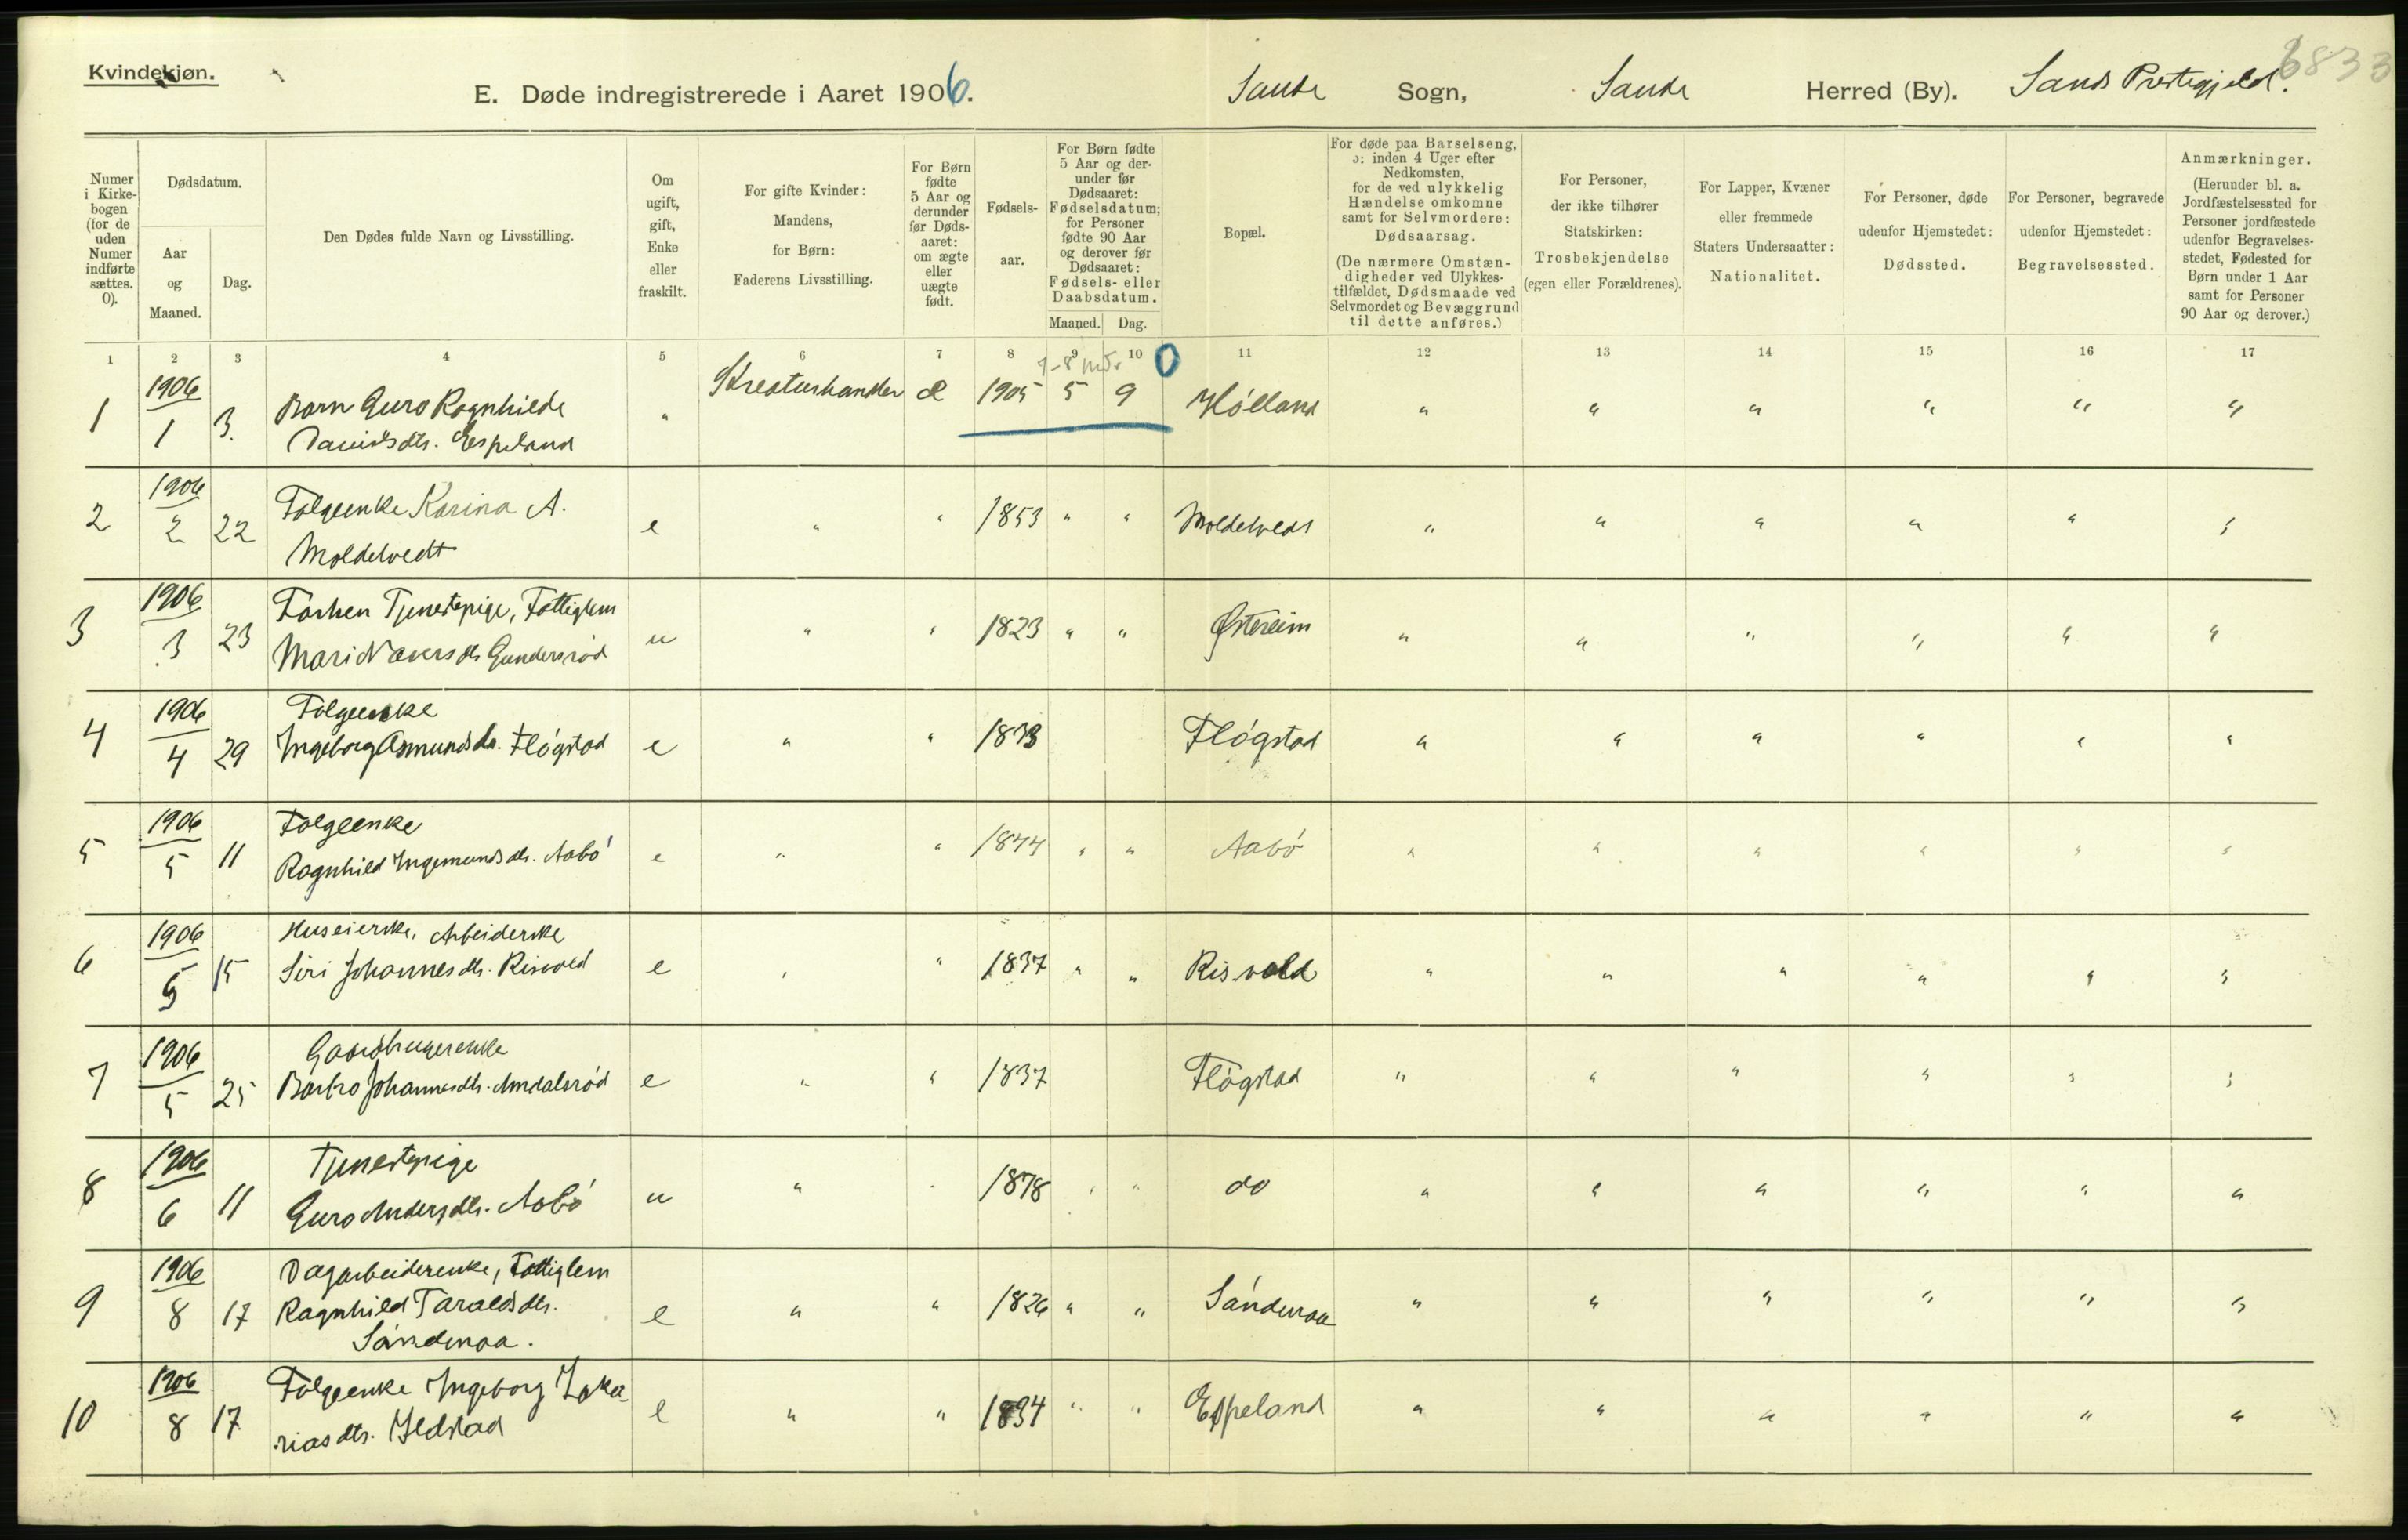 Kvindekjøn.
E. Døde indregistrerede i Aaret 1906.
Sande Sogn, Sande Herred (By). Sands Prestegjeld.
6833
Numer i Kirkebogen (for de uden Numer indførte sættes. 0).
Dødsdatum.
Aar og Maaned.
Dag.
Den Dødes fulde Navn og Livsstilling.
Om ugift, gift, Enke eller fraskilt.
For gifte Kvinder: Mandens, for Børn: Faderens Livsstilling.
For Børn fødte 5 Aar og derunder før Dødsaaret: om ægte eller uægte født.
Fødselsaar.
For Børn fødte 5 Aar og derunder før Dødsaaret: Fødselsdatum; for Personer fødte 90 Aar og derover før Dødsaaret: Fødsels- eller Daabsdatum.
Maaned. Dag.
Bopæl.
For døde paa Barselseng, ɔ: inden 4 Uger efter Nedkomsten, for de ved ulykkelig Hændelse omkomne samt for Selvmordere: Dødsaarsag.
(De nærmere Omstændigheder ved Ulykkestilfældet, Dødsmaade ved Selvmordet og Bevæggrund til dette anføres.)
For Personer, der ikke tilhører Statskirken: Trosbekjendelse (egen eller Forældrenes).
For Lapper, Kvæner eller fremmede Staters Undersaatter: Nationalitet.
For Personer, døde udenfor Hjemstedet: Dødssted.
For Personer, begravede udenfor Hjemstedet: Begravelsessted.
Anmærkninger.
(Herunder bl. a. Jordfæstelsessted for Personer jordfæstede udenfor Begravelsesstedet, Fødested for Børn under 1 Aar samt for Personer 90 Aar og derover.)
1 2 3 4 5 6 7 8 9 10 11 12 13 14 15 16 17
7-8 mdr 0
1 1906 1 3. Barn Guro Ragnhilde " Kreaturhandler æ 1905 5 9 Hólland " " " " " "
Davidsdtr. Espeland
2 1906 2 22 Folgeenke Karina A. e " " 1853 " " Moldetvedt " " " " " "
Moldetvedt
3 1906 3 23 Forhen Tjenestepige, Fattiglem u " " 1823 " " Østreim " " " " " "
Mari Gundersród
4 1906 4 29 Folgeenke e " " 1833 Flógstad " " " " " "
Ingeborg Asmundsdtr. Flógstad
5 1906 5 11 Folgeenke e " " 1844 " " Aabó " " " " " "
Ragnhild Ingemundsdtr. Aabó
6 1906 5 15 Huseierske, Arbeiderske e " " 1837 " " Risvold " " " " " "
Siri Johannesdtr. Risvold
7 1906 5 25 Gaardbrugerenke e " " 1837 Flógstad " " " " " "
Barbro Johannesdtr. Amdalsród
8 1906 6 11 Tjenestepige u " " 1878 " " do " " " " " "
Guro Andersdtr. Aabó
9 1906 8 17 Dagarbeiderenke, Fattiglem e " " 1826 " " Sándenaa " " " " " "
Ragnhild Taraldsdtr.
Sándenaa.
10 1906 8 17 Folgeenke Ingeborg Zaka e " " 1834 " " Espeland " " " " " "
riasdtr.